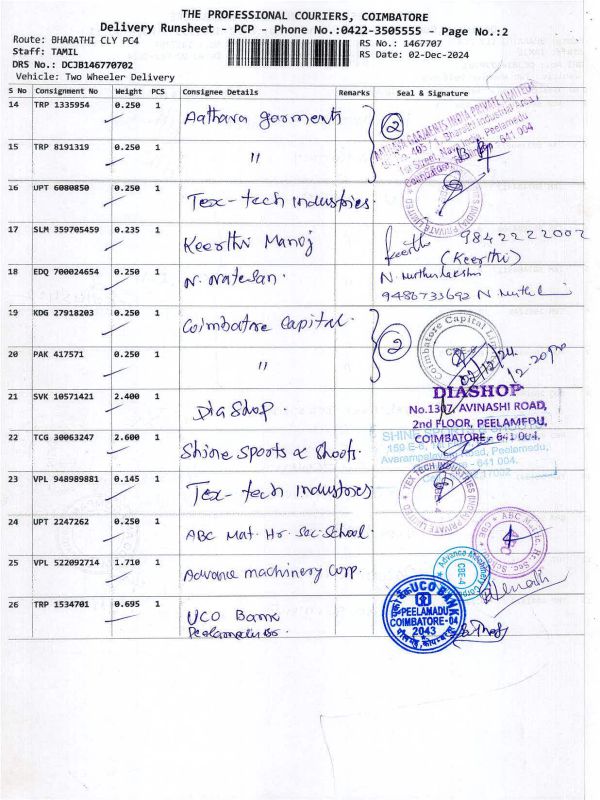 THE PROFESSIONAL COURIERS, COIMBATORE
Delivery Runsheet - PCP - Phone No.:0422-3505555 - Page No.:2
Route: BHARATHI CLY PC4
RS No.: 1467707
Staff: TAMIL
RS Date: 02-Dec-2024
DRS No.: DCJB146770702
Vehicle: Two Wheeler Delivery
S No Consignment No Weight PCS Consignee Details Remarks Seal & Signature
14 TRP 1335954 0.250 1 Aathava garments 2
15 TRP 8191319 0.250 1 "
16 UPT 6080850 0.250 1 Tex-tech industries.
17 SLM 359705459 0.235 1 Keerthi Manoj 9842222002
(Keerthi)
18 EDQ 700024654 0.250 1 N. Natesan.
9486733692
19 KDG 27918203 0.250 1 Coimbatore Capital. 2
Coimbatore Capital
20 PAK 417571 0.250 1 " 02/12/24
12.20pm
21 SVK 10571421 2.400 1 Diashop.
DIASHOP
No.1307, AVINASHI ROAD,
2nd FLOOR, PEELAMEDU,
COIMBATORE - 641 004.
22 TCG 30063247 2.600 1 Shine Sports & Shoots.
Road, Peelamedu,
- 641 004.
23 VPL 948989881 0.145 1 Tex-tech industries
TEX TECH INDUSTRIES (INDIA) PRIVATE LIMITED
24 UPT 2247262 0.250 1 ABC Mat. Hr. Sec. School.
ABC Matric. Hr. Sec. School
CBE
25 VPL 522092714 1.710 1 Advance machinery Corp.
CBE-4
26 TRP 1534701 0.695 1 UCO Bank
Peelamedu Bo.
UCO BANK
PEELAMADU
COIMBATORE-04
2043